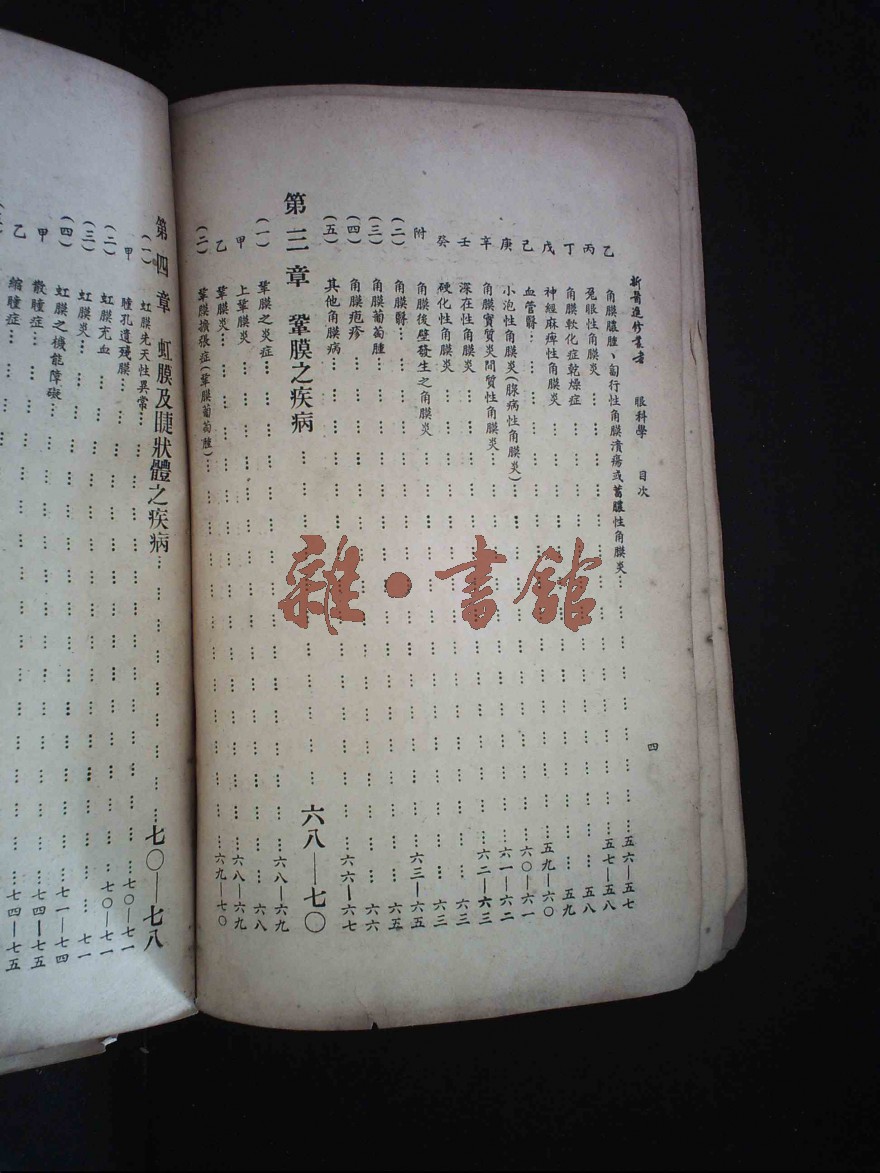 新醫進修叢書 眼科學 目次 四
乙 角膜膿腫、匐行性角膜潰瘍或蓄膿性角膜炎………五六—五七
丙 兔眼性角膜炎………五七—五八
丁 角膜軟化症乾燥症………五八
戊 神經麻痺性角膜炎………五九
己 血管翳………五九—六〇
庚 小泡性角膜炎(腺病性角膜炎)………六〇—六一
辛 角膜實質炎間質性角膜炎………六一—六二
壬 深在性角膜炎………六二—六三
癸 硬化性角膜炎………六三
附 角膜後壁發生之角膜炎………六三
(二) 角膜翳………六三—六五
(三) 角膜葡萄腫………六五
(四) 角膜疱疹………六六
(五) 其他角膜病………六六—六七
第三章 鞏膜之疾病………六八—七〇
(一) 鞏膜之炎症………六八—六九
甲 上鞏膜炎………六八
乙 鞏膜炎………六八—六九
(二) 鞏膜擴張症(鞏膜葡萄腫)………六九—七〇
第四章 虹膜及睫狀體之疾病………七〇—七八
(一) 虹膜先天性異常………七〇—七一
甲 瞳孔遺殘膜………七〇—七一
(二) 虹膜充血………七一
(三) 虹膜炎………七一—七四
(四) 虹膜之機能障礙………七四—七五
甲 散瞳症………七四—七五
乙 縮瞳症………
雜·書館